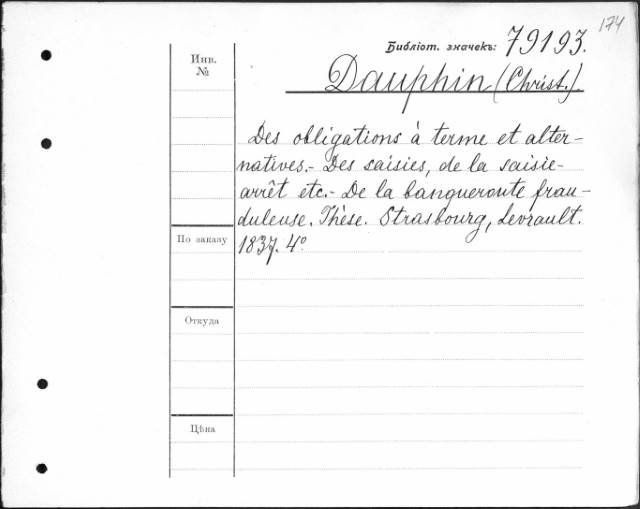 174
Библіот. значекъ: 79193.
Инв.
№
Dauphin (Christ.).
Des obligations à terme et alter-
natives.- Des saisies, de la saisie-
arrêt etc.- De la banqueroute frau-
duleuse. Thèse. Strasbourg, Levrault.
1837. 4°
По заказу
Откуда
Цѣна